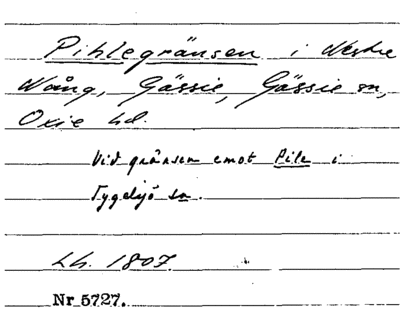 Pihlegränsen i Westre
Wång, Gässie, Gässie sn,
Oxie hd.
Vid gränsen emot Pile i
Tygelsjö sn.
Lh. 1807.
Nr 5727.